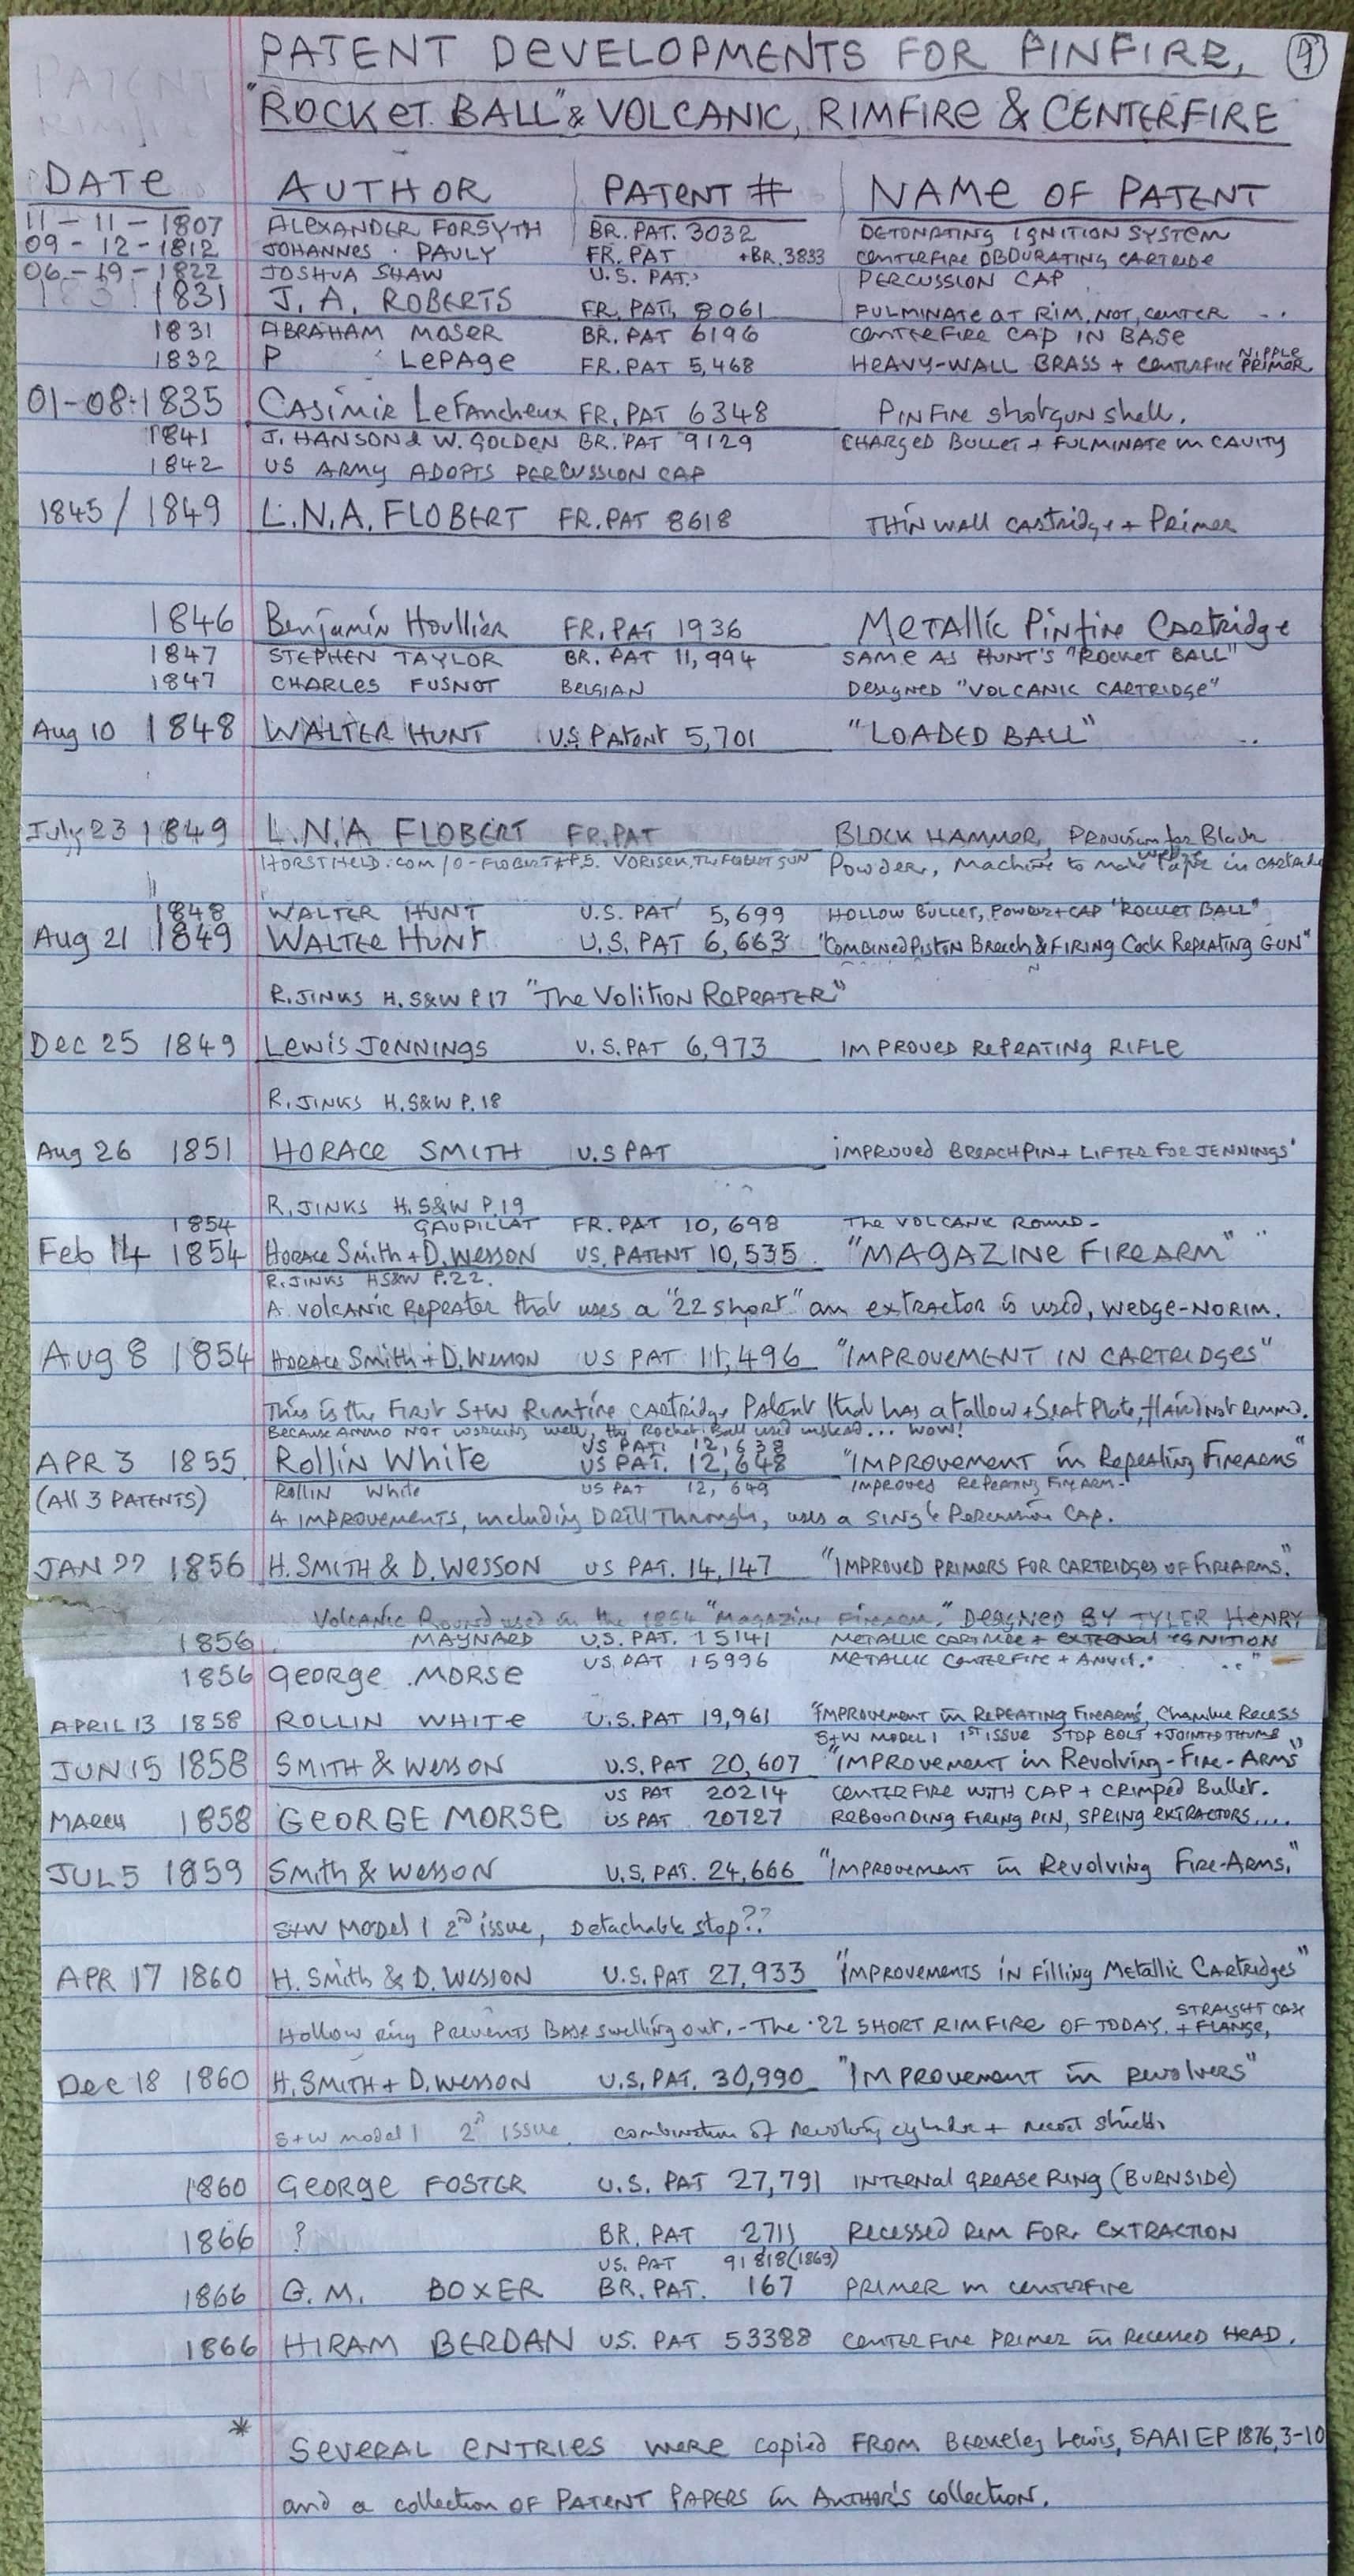 PATENT DEVELOPMENTS FOR PINFIRE, 9
"ROCKET BALL" & VOLCANIC, RIMFIRE & CENTERFIRE
DATE AUTHOR PATENT # NAME OF PATENT
11-11-1807 ALEXANDER FORSYTH BR. PAT. 3032 DETONATING IGNITION SYSTEM
09-12-1812 JOHANNES PAULY FR. PAT +BR. 3833 CENTERFIRE OBDURATING CARTRIDE
06-19-1822 JOSHUA SHAW U.S. PAT. PERCUSSION CAP
1831 J. A. ROBERTS FR. PAT. 8061 FULMINATE AT RIM, NOT, CENTER
1831 ABRAHAM MOSER BR. PAT 6196 CENTERFIRE CAP IN BASE
1832 P LEPAGE FR. PAT 5,468 HEAVY-WALL BRASS + CENTERFIRE NIPPLE PRIMER.
01-08-1835 Casimir Lefaucheux FR. PAT 6348 PINFIRE shotgun shell.
1841 J. HANSON & W. GOLDEN BR. PAT 9129 CHARGED BULLET + FULMINATE in CAVITY
1842 US ARMY ADOPTS PERCUSSION CAP
1845/1849 L.N.A. FLOBERT FR. PAT 8618 THIN WALL CARTRIDGE + PRIMER
1846 Benjamin Houllier FR. PAT 1936 METALLIC PINFIRE CARTRIDGE
1847 STEPHEN TAYLOR BR. PAT 11,994 SAME AS HUNT'S "ROCKET BALL"
1847 CHARLES FUSNOT BELGIAN DESIGNED "VOLCANIC CARTRIDGE"
Aug 10 1848 WALTER HUNT U.S. Patent 5,701 "LOADED BALL"
July 23 1849 L.N.A FLOBERT FR. PAT BLOCK HAMMER, Provision for Black
Powder, Machine to make in
1848 WALTER HUNT U.S. PAT 5,699 HOLLOW BULLET, POWDER+CAP "ROCKET BALL"
Aug 21 1849 WALTER HUNT U.S. PAT 6,663 "COMBINED PISTON BREECH & FIRING COCK REPEATING GUN"
R. JINKS H. S&W P.17 "The Volition REPEATER"
Dec 25 1849 Lewis JENNINGS U.S. PAT 6,973 IMPROVED REPEATING RIFLE
R. JINKS H. S&W P. 18
Aug 26 1851 HORACE SMITH U.S PAT improved BREACHPIN + LIFTER FOR JENNINGS'
R. JINKS H. S&W P. 19
1854 GAUPILLAT FR. PAT 10,698 The VOLCANIC ROUND-
Feb 14 1854 Horace Smith + D. Wesson US. PATENT 10,535 "MAGAZINE FIREARM"
R. JINKS HS&W P. 22.
A VOLCANIC REPEATER that uses a "22 SHORT" an extractor is used, WEDGE-NORIM.
Aug 8 1854 Horace Smith + D. Wesson US PAT 11,496 "IMPROVEMENT IN CARTRIDGES"
This is the First S+W Rimfire CARTRIDGE Patent that has a tallow + Seat Plate, flaird not rimmd.
BECAUSE AMMO NOT WORKING well, thy Rocket Ball used instead... WOW!
US PAT. 12,638
APR 3 1855 Rollin White US PAT. 12,648 "IMPROVEMENT in Repeating FIREARMS"
(All 3 PATENTS) Rollin White US PAT 12,649 IMPROVED REPEATING FIREARM-
4 IMPROVEMENTS, including DRILL Through, uses a single Percussion Cap.
JAN 22 1856 H. SMITH & D. WESSON US PAT. 14,147 "IMPROVED PRIMERS FOR CARTRIDGES OF FIREARMS."
Volcanic Round used in the 1854 "Magazine Firearm." DESIGNED BY TYLER HENRY
1856 MAYNARD U.S. PAT. 15141 METALLIC CARTRIDGE + EXTERNAL IGNITION
1856 George MORSE US. PAT 15996 METALLIC CENTERFIRE + ANVIL.
APRIL 13 1858 ROLLIN WHITE U.S. PAT 19,961 "IMPROVEMENT in REPEATING FIREARMS", Chamber Recess
S+W MODEL 1 1ST ISSUE STOP BOLT + JOINTED THUMB
JUN 15 1858 SMITH & WESSON U.S. PAT 20,607 "IMPROVEMENT in Revolving-Fire-ARMS"
US PAT 20214 CENTERFIRE WITH CAP + CRIMPED BULLET.
MARCH 1858 GEORGE MORSE US PAT 20727 REBOUNDING FIRING PIN, SPRING EXTRACTORS....
JUL 5 1859 Smith & Wesson U.S. PAT. 24,666 "IMPROVEMENT in Revolving Fire-Arms."
S+W Model 1 2nd issue, Detachable stop??
APR 17 1860 H. Smith & D. Wesson U.S. PAT 27,933 "IMPROVEMENTS in Filling Metallic Cartridges"
Hollow ring Prevents Base swelling out. - The .22 SHORT RIMFIRE OF TODAY. STRAIGHT CASE + FLANGE,
Dec 18 1860 H. SMITH + D. WESSON U.S. PAT. 30,990 "IMPROVEMENT in revolvers"
S+W model 1 2nd ISSUE. combination of revolving cylinder + recoil shield
1860 George FOSTER U.S. PAT 27,791 INTERNAL GREASE RING (BURNSIDE)
1866 ? BR. PAT 2711 RECESSED RIM FOR EXTRACTION
US. PAT 91818 (1869)
1866 G. M. BOXER BR. PAT. 167 PRIMER in CENTERFIRE
1866 HIRAM BERDAN US. PAT 53388 CENTERFIRE PRIMER in Recessed HEAD.
* SEVERAL ENTRIES were copied FROM Berkeley Lewis, SAAIEP 1876, 3-10
and a collection OF PATENT PAPERS in AUTHOR'S collection.